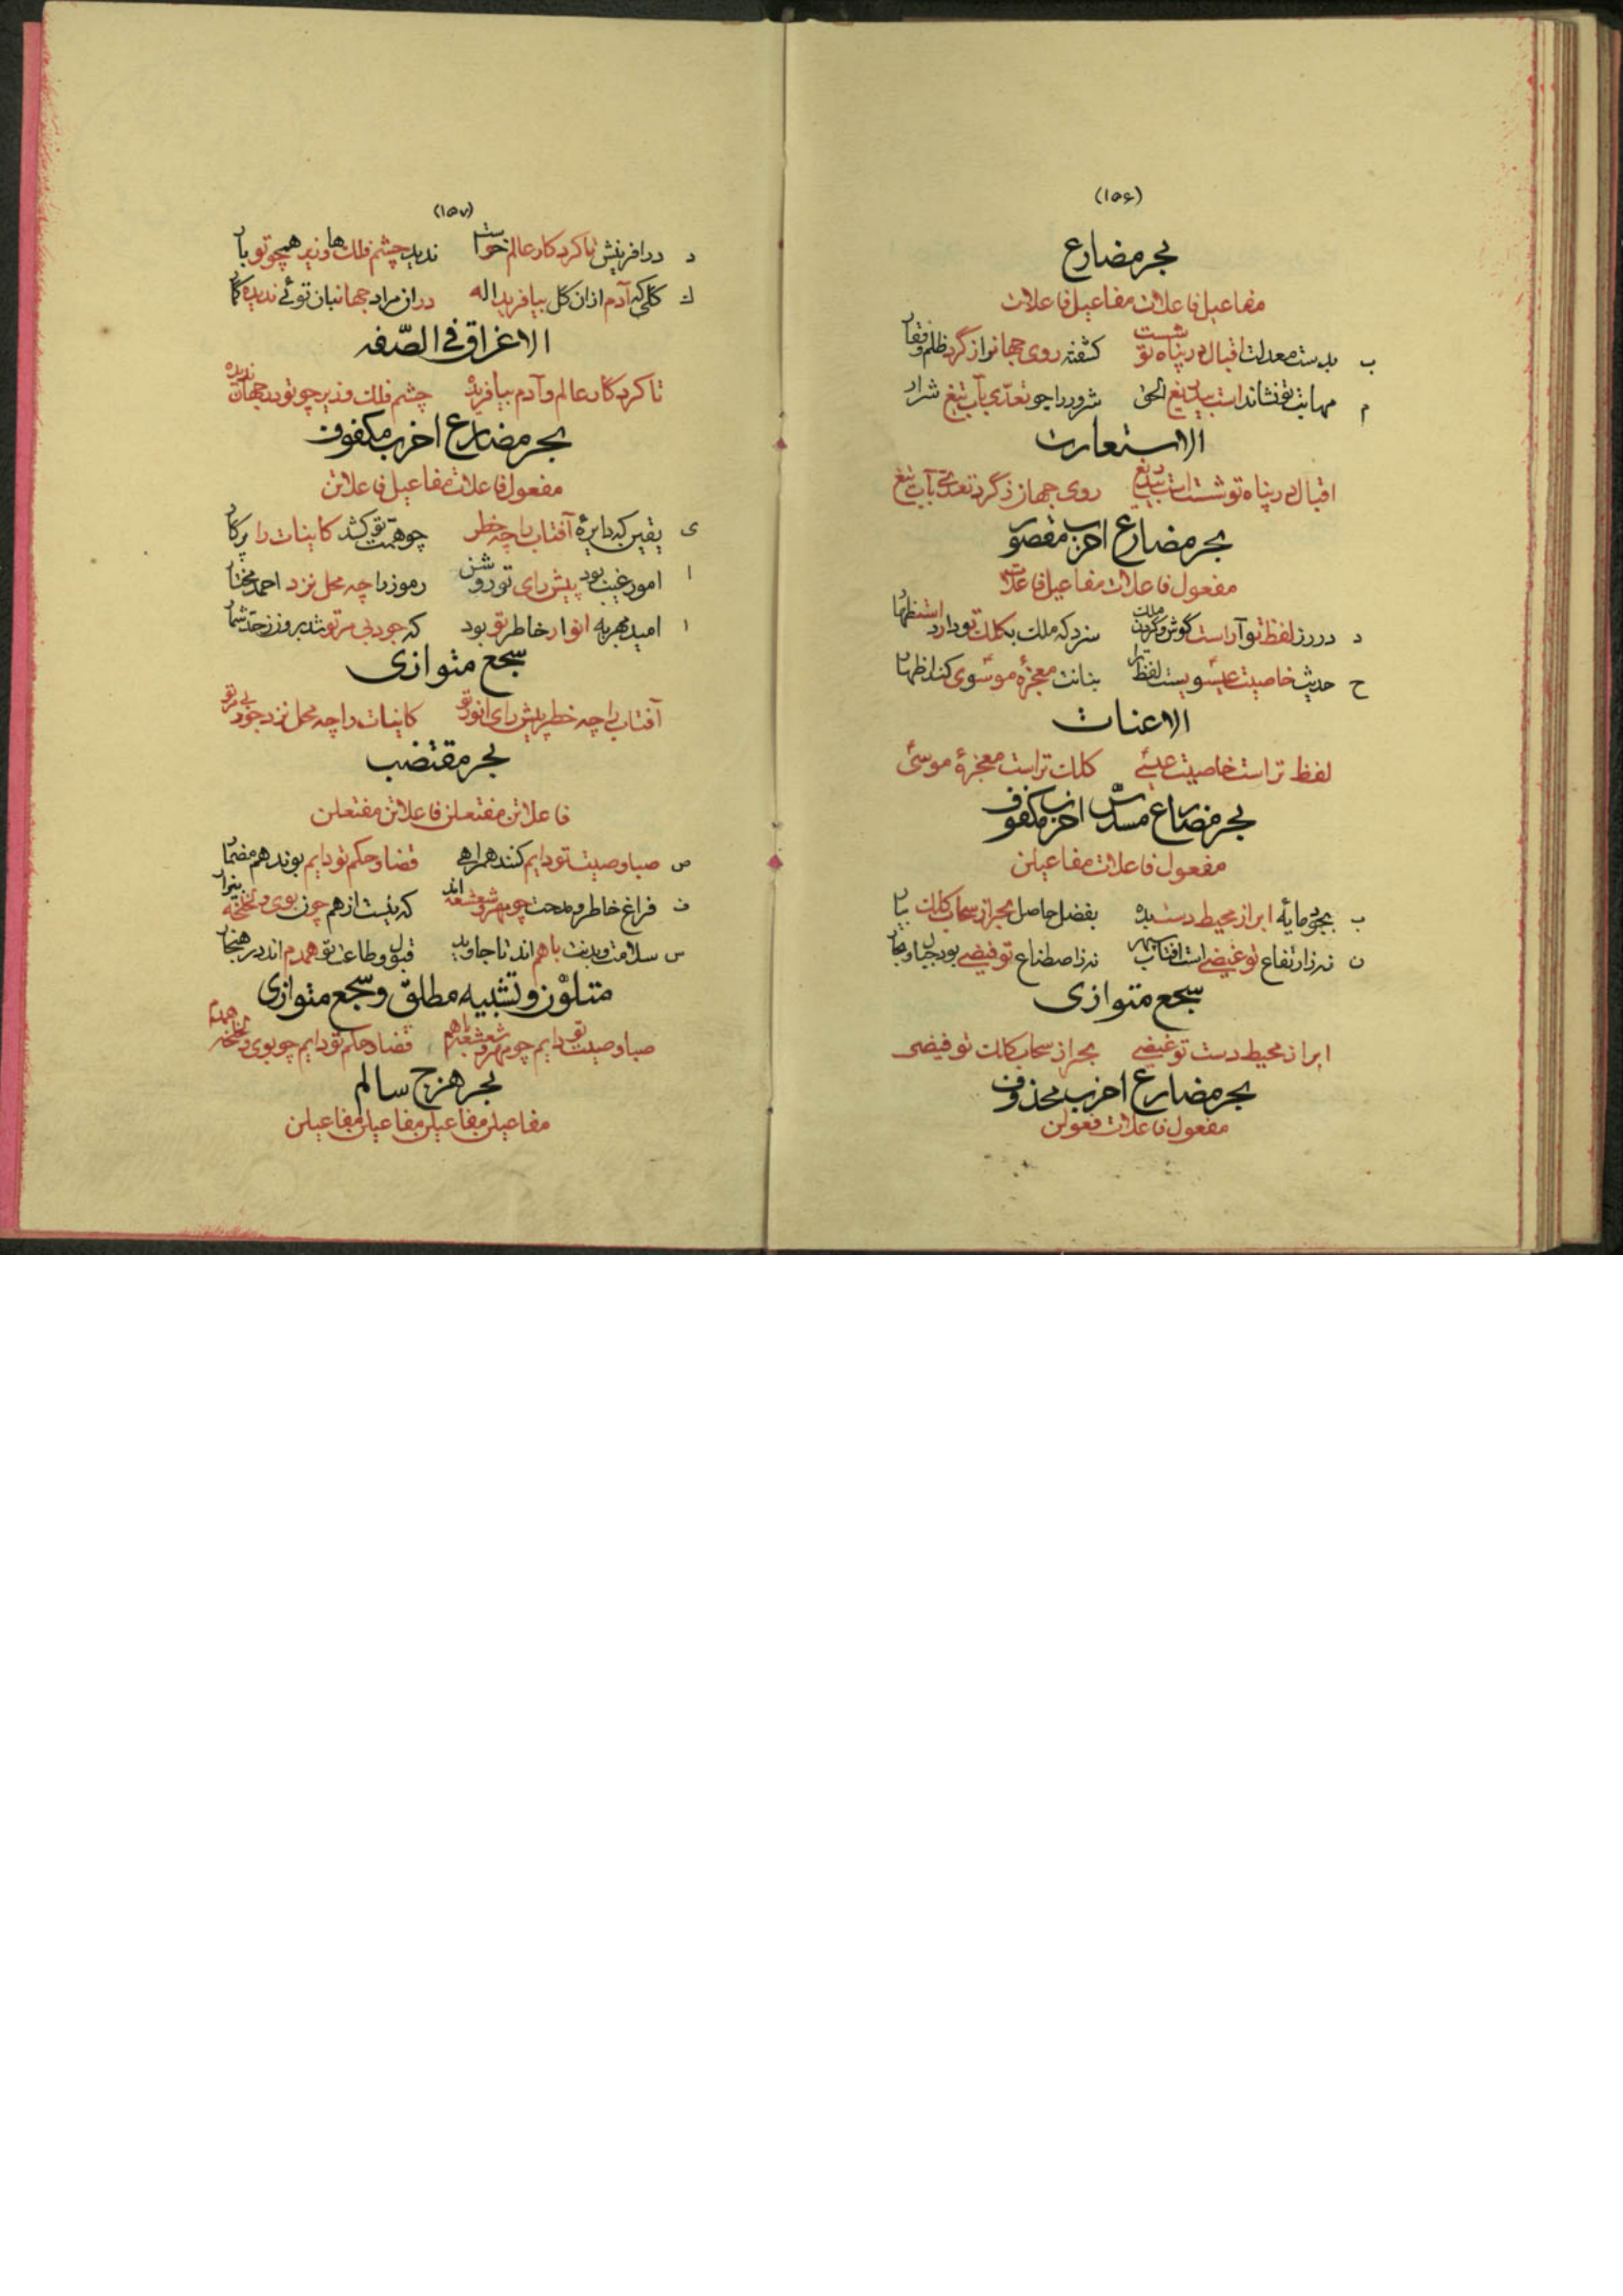 (۱۵۶)
بحر مضارع
مفاعیل فاعلات مفاعیل فاعلات
ب بدست معدلت اقبال در پناه تو شست کشفته روی جهانرا از گرد ظلم و
م مهابت تو نشاند است بیدریغ الحق شرور را چو تعدی بآب تیغ شرار
الاستعارت
اقبال در پناه تو شست است بیدریغ روی جهان ز گرد تعدی بآب تیغ
بحر مضارع اخرب مقصور
مفعول فاعلات مفاعیل فاعلات
د درر ز لفظ تو آراست گوش و گردن ملک سزد که ملک بکلک تو دارد استظهار
ح حدیث خاصیت عیسویست لفظ ترا بنانت معجزهٔ موسوی کند اظهار
الاعنات
لفظ تراست خاصیت عیسی کلک تراست معجزهٔ موسی
بحر مضارع مسدس اخرب مکفوف
مفعول فاعلات مفاعیلن
ب بجود مایه ابر از محیط دست بده بفضل حاصل بحر از سحاب کلک بیار
ن نه ز ارتفاع تو غیضی است آفتاب نه ز اصطناع تو فیضی بود جبال و بحار
سجع متوازی
ابر از محیط دست تو غیضی بحر از سحاب کلک تو فیضی
بحر مضارع اخرب محذوف
مفعول فاعلات فعولن
(۱۵۷)
د در افرینش تا کردکار عالم خواست ندید چشم فلک ها وزیر همچو تو یار
ك کلی که آدم از ان کل بیافرید اله در ان مراد جهانبان توئی ندیده
الاغراق فی الصّفه
تا کردکار عالم و آدم بیافرید چشم فلک وزیر چو تو در جهان ندیده
بحر مضارع اخرب مکفوف
مفعول فاعلات مفاعیل فاعلاتن
ی یقین که دایرهٔ آفتاب را چه خطر چو همت تو کشد کاینات را پرکار
ا امور غیب بود پیش رای تو روشن رموز را چه محل نزد احمد مختار
ا امید بهر به انوار خاطر تو بود که جود بی مر تو شد برون ز حد شمار
سجع متوازی
آفتاب را چه خطر پیش رای انور تو کاینات را چه محل نزد جود بی مر تو
بحر مقتضب
فاعلاتن مفتعلن فاعلاتن مفتعلن
ص صبا و صیت تو دایم کنند همراهی قضا و حکم تو دایم بوند هم مضمار
ف فراغ خاطر و مدحت چو مهر و شعشعه اند که نیست از هم چون بوی و لخلخه بیزار
س سلامت و بدنت با هم اند تا جاوید قبول و طاعت تو همدم اند در هنجار
متلوّن و تشبیه مطلق و سجع متوازی
صبا و صیت تو دایم چو مهر و شعشعه با هم قضا و حکم تو دایم چو بوی و لخلخه همدم
بحر هزج سالم
مفاعیلن مفاعیلن مفاعیلن مفاعیلن